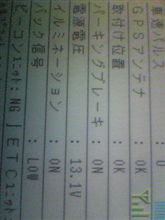 車速パルス : 0
GPSアンテナ : OK
取付け位置 : OK
パーキングブレーキ : ON
電源電圧 : 13.1V
イルミネーション : ON
バック信号 : LOW
ビーコンユニット: NG | ETCユニット